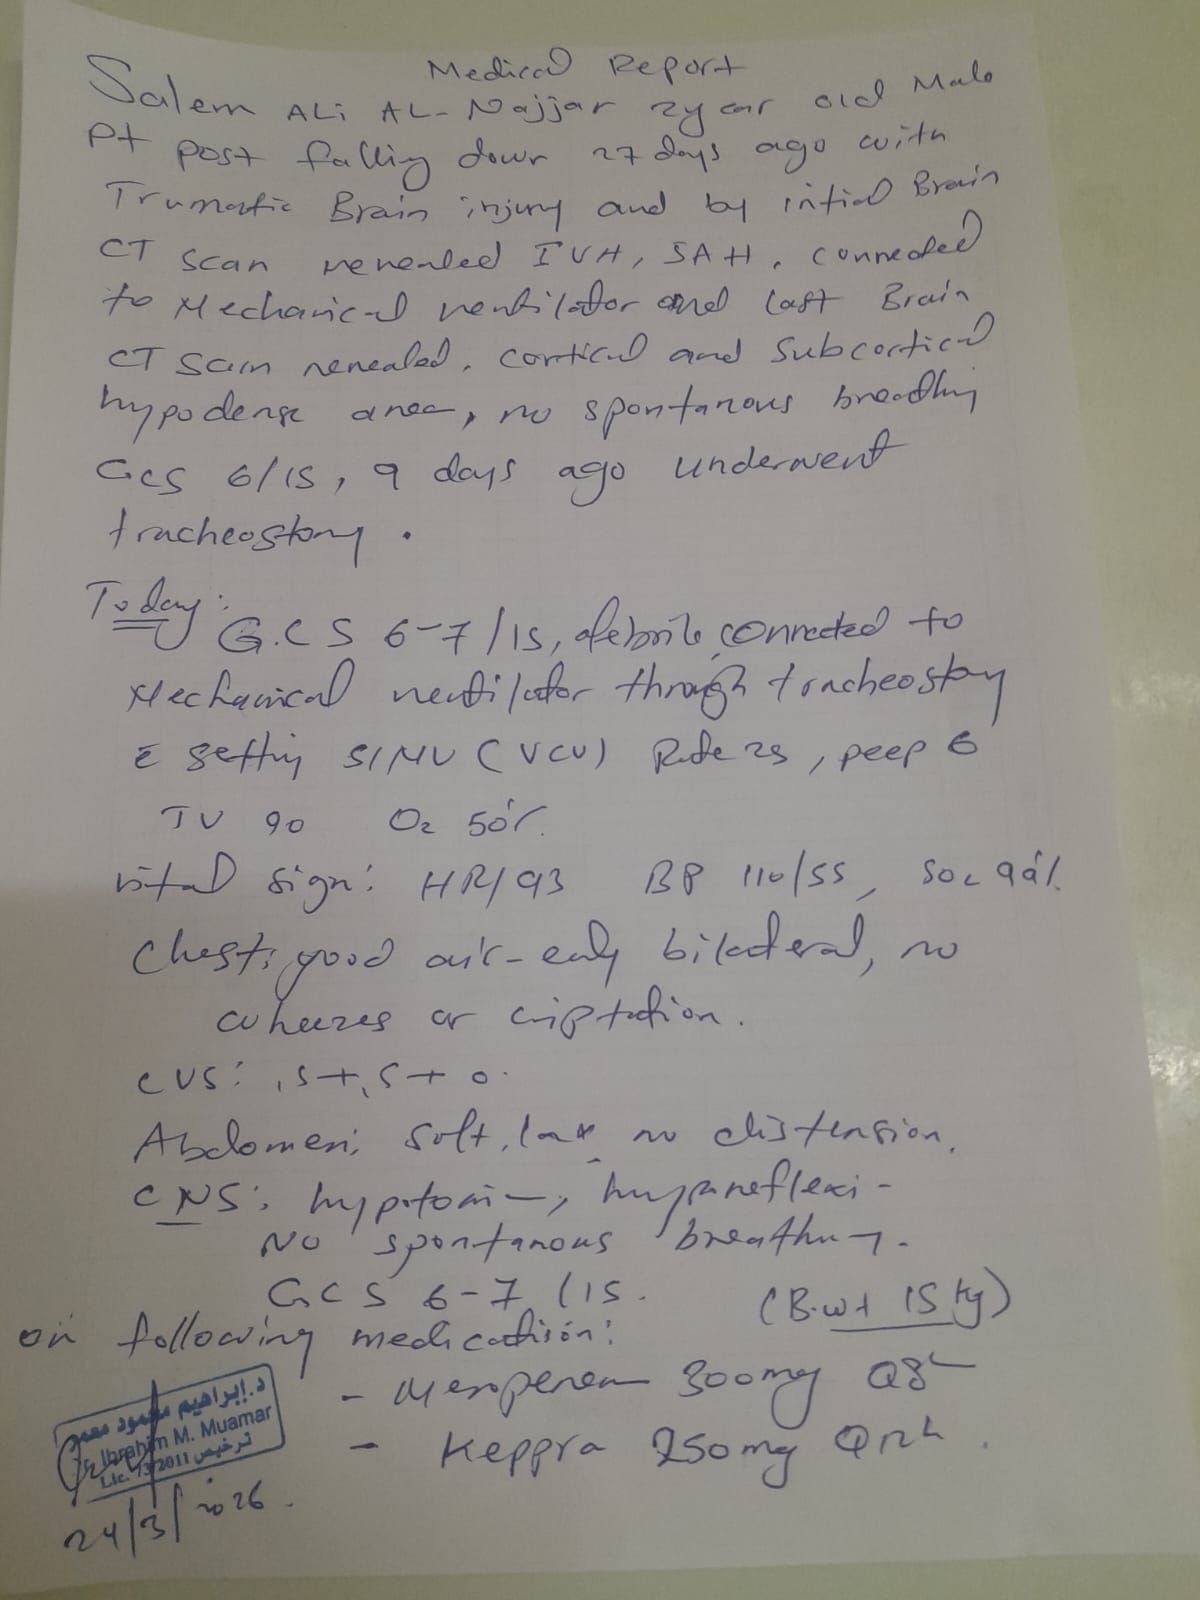 Medical Report
Salem ALi AL-Najjar 2year old Male
Pt post falling down 27 days ago with
Trumatic Brain injury and by intial Brain
CT scan revealed IVH, SAH, connected
to Mechanical ventilator and last Brain
CT scan revealed, cortical and subcortical
hypodense area, no spontanous breathing
GCS 6/15, 9 days ago underwent
tracheostomy.
Today:
G.C S 6-7/15, afebrile, connected to
Mechanical ventilator through tracheostomy
setting SIMV (VCV) Rate 25, peep 6
TV 90 O2 50%
vital sign: HR/93 BP 110/55, SO2 99%
Chest: good air-entry bilateral, no
wheezes or
CVS: S+ S+ 0.
Abdomen: soft, lax, no distension.
CNS: hypotoni-, hyperreflexi-
NO spontanous breathing.
GCS 6-7/15.
(B.wt 15 kg)
on following medication:
- Meropenem 300mg Q8h
- Keppra 250mg Q12h.
د. إبراهيم محمود معمر
Ibrahim M. Muamar
ترخيص
24/3/2026.